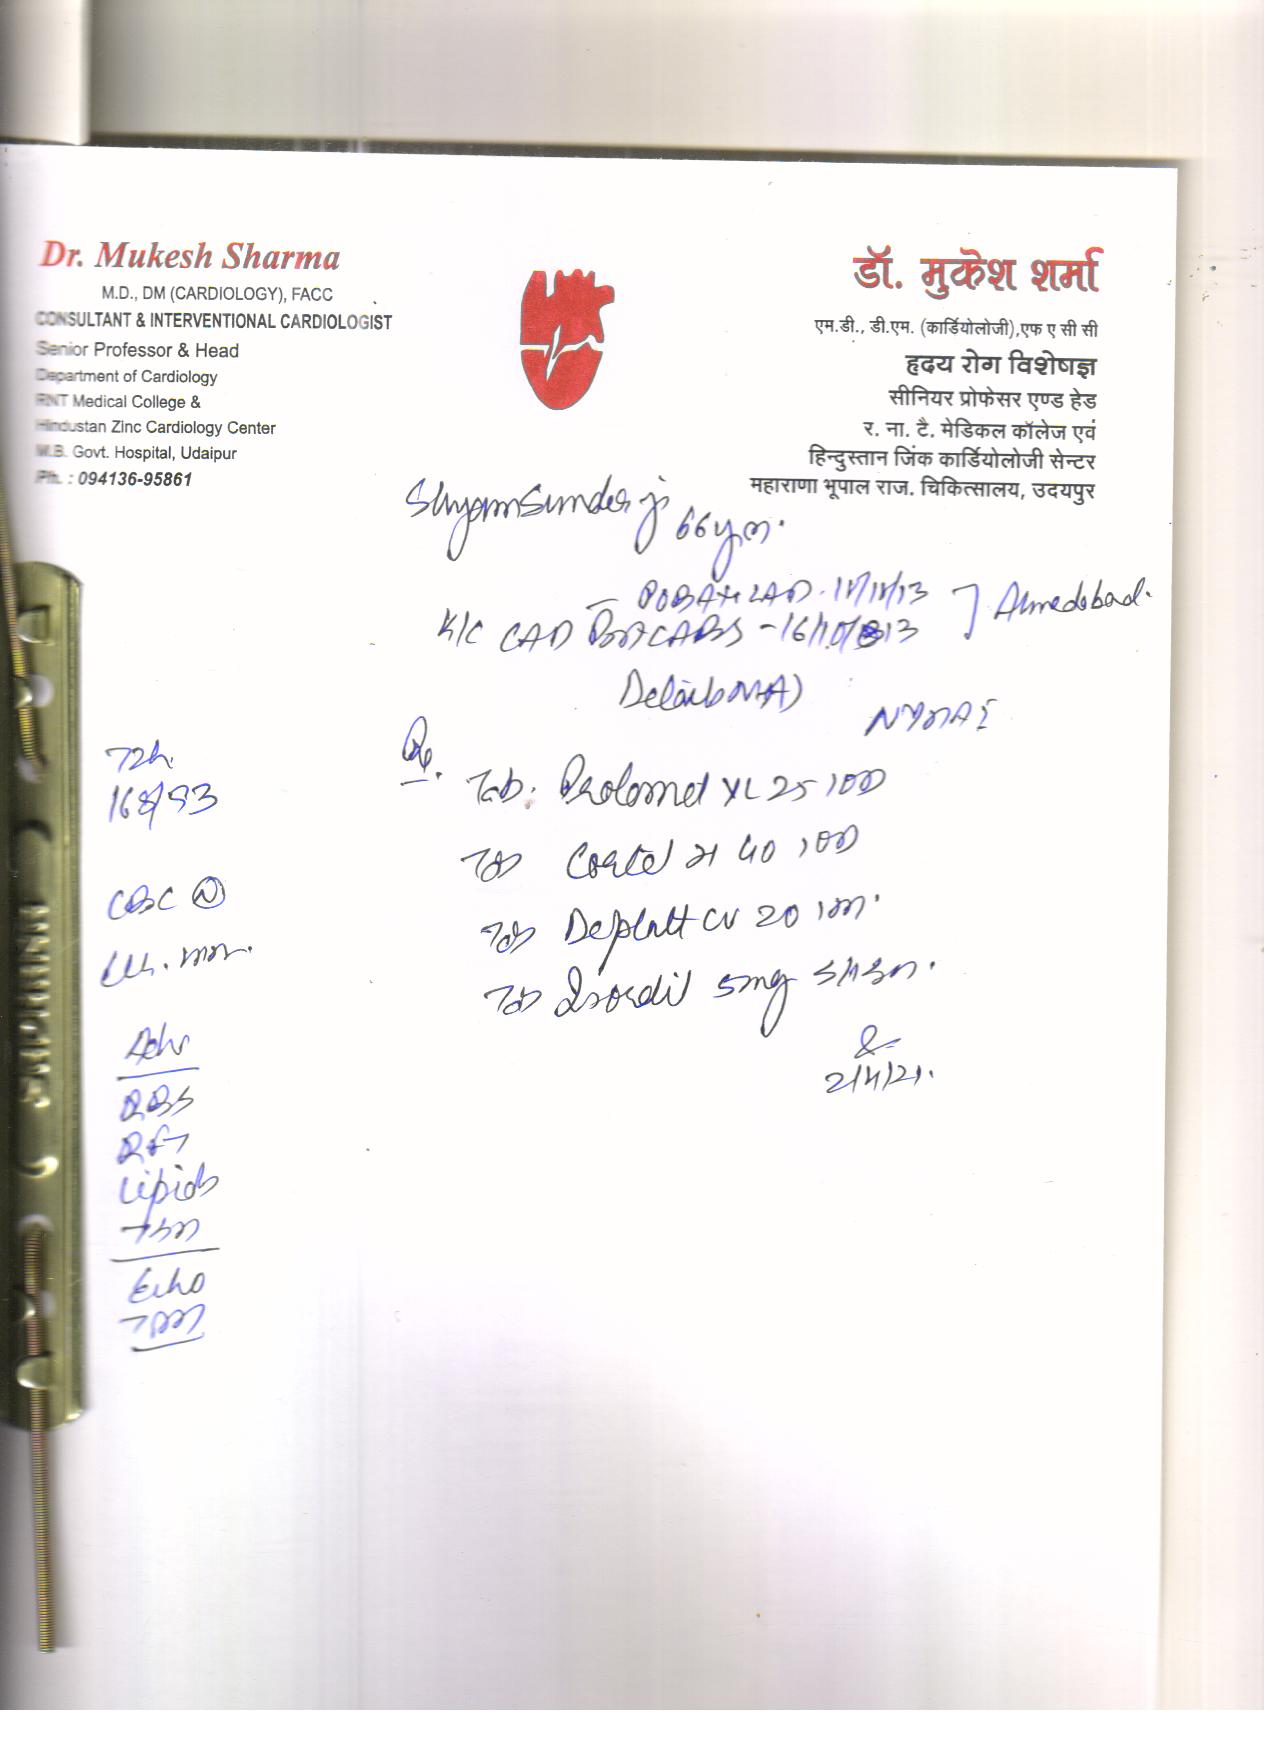 Dr. Mukesh Sharma
M.D., DM (CARDIOLOGY), FACC
CONSULTANT & INTERVENTIONAL CARDIOLOGIST
Senior Professor & Head
Department of Cardiology
RNT Medical College &
Hindustan Zinc Cardiology Center
M.B. Govt. Hospital, Udaipur
Ph. : 094136-95861
डॉ. मुकेश शर्मा
एम.डी., डी.एम. (कार्डियोलोजी),एफ ए सी सी
हृदय रोग विशेषज्ञ
सीनियर प्रोफेसर एण्ड हेड
र. ना. टै. मेडिकल कॉलेज एवं
हिन्दुस्तान जिंक कार्डियोलोजी सेन्टर
महाराणा भूपाल राज. चिकित्सालय, उदयपुर
Shyam Sunder ji 66 yr.
Ahmedabad.
K/C CAD Post CABG - 16/10/13
Details NA)
NYHA I
Rx.
Tab. Prolomet XL 25 1 OD
Tab 40 1 OD
Tab Deplatt CV 20
Tab Isordil 5mg S/L SOS.
2/4/21.
72/m
CBC (N)
Adv
RBS
RFT
Lipids
TSH
Echo
TMT